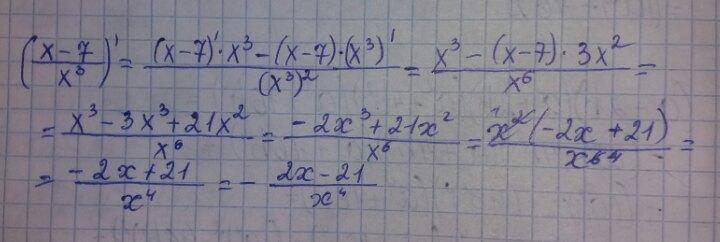 ((x-7)/x³)' = ((x-7)'·x³-(x-7)·(x³)')/(x³)² = (x³-(x-7)·3x²)/x⁶ =
= (x³-3x³+21x²)/x⁶ = (-2x³+21x²)/x⁶ = x²(-2x+21)/x⁶ ⁴ =
= (-2x+21)/x⁴ = - (2x-21)/x⁴